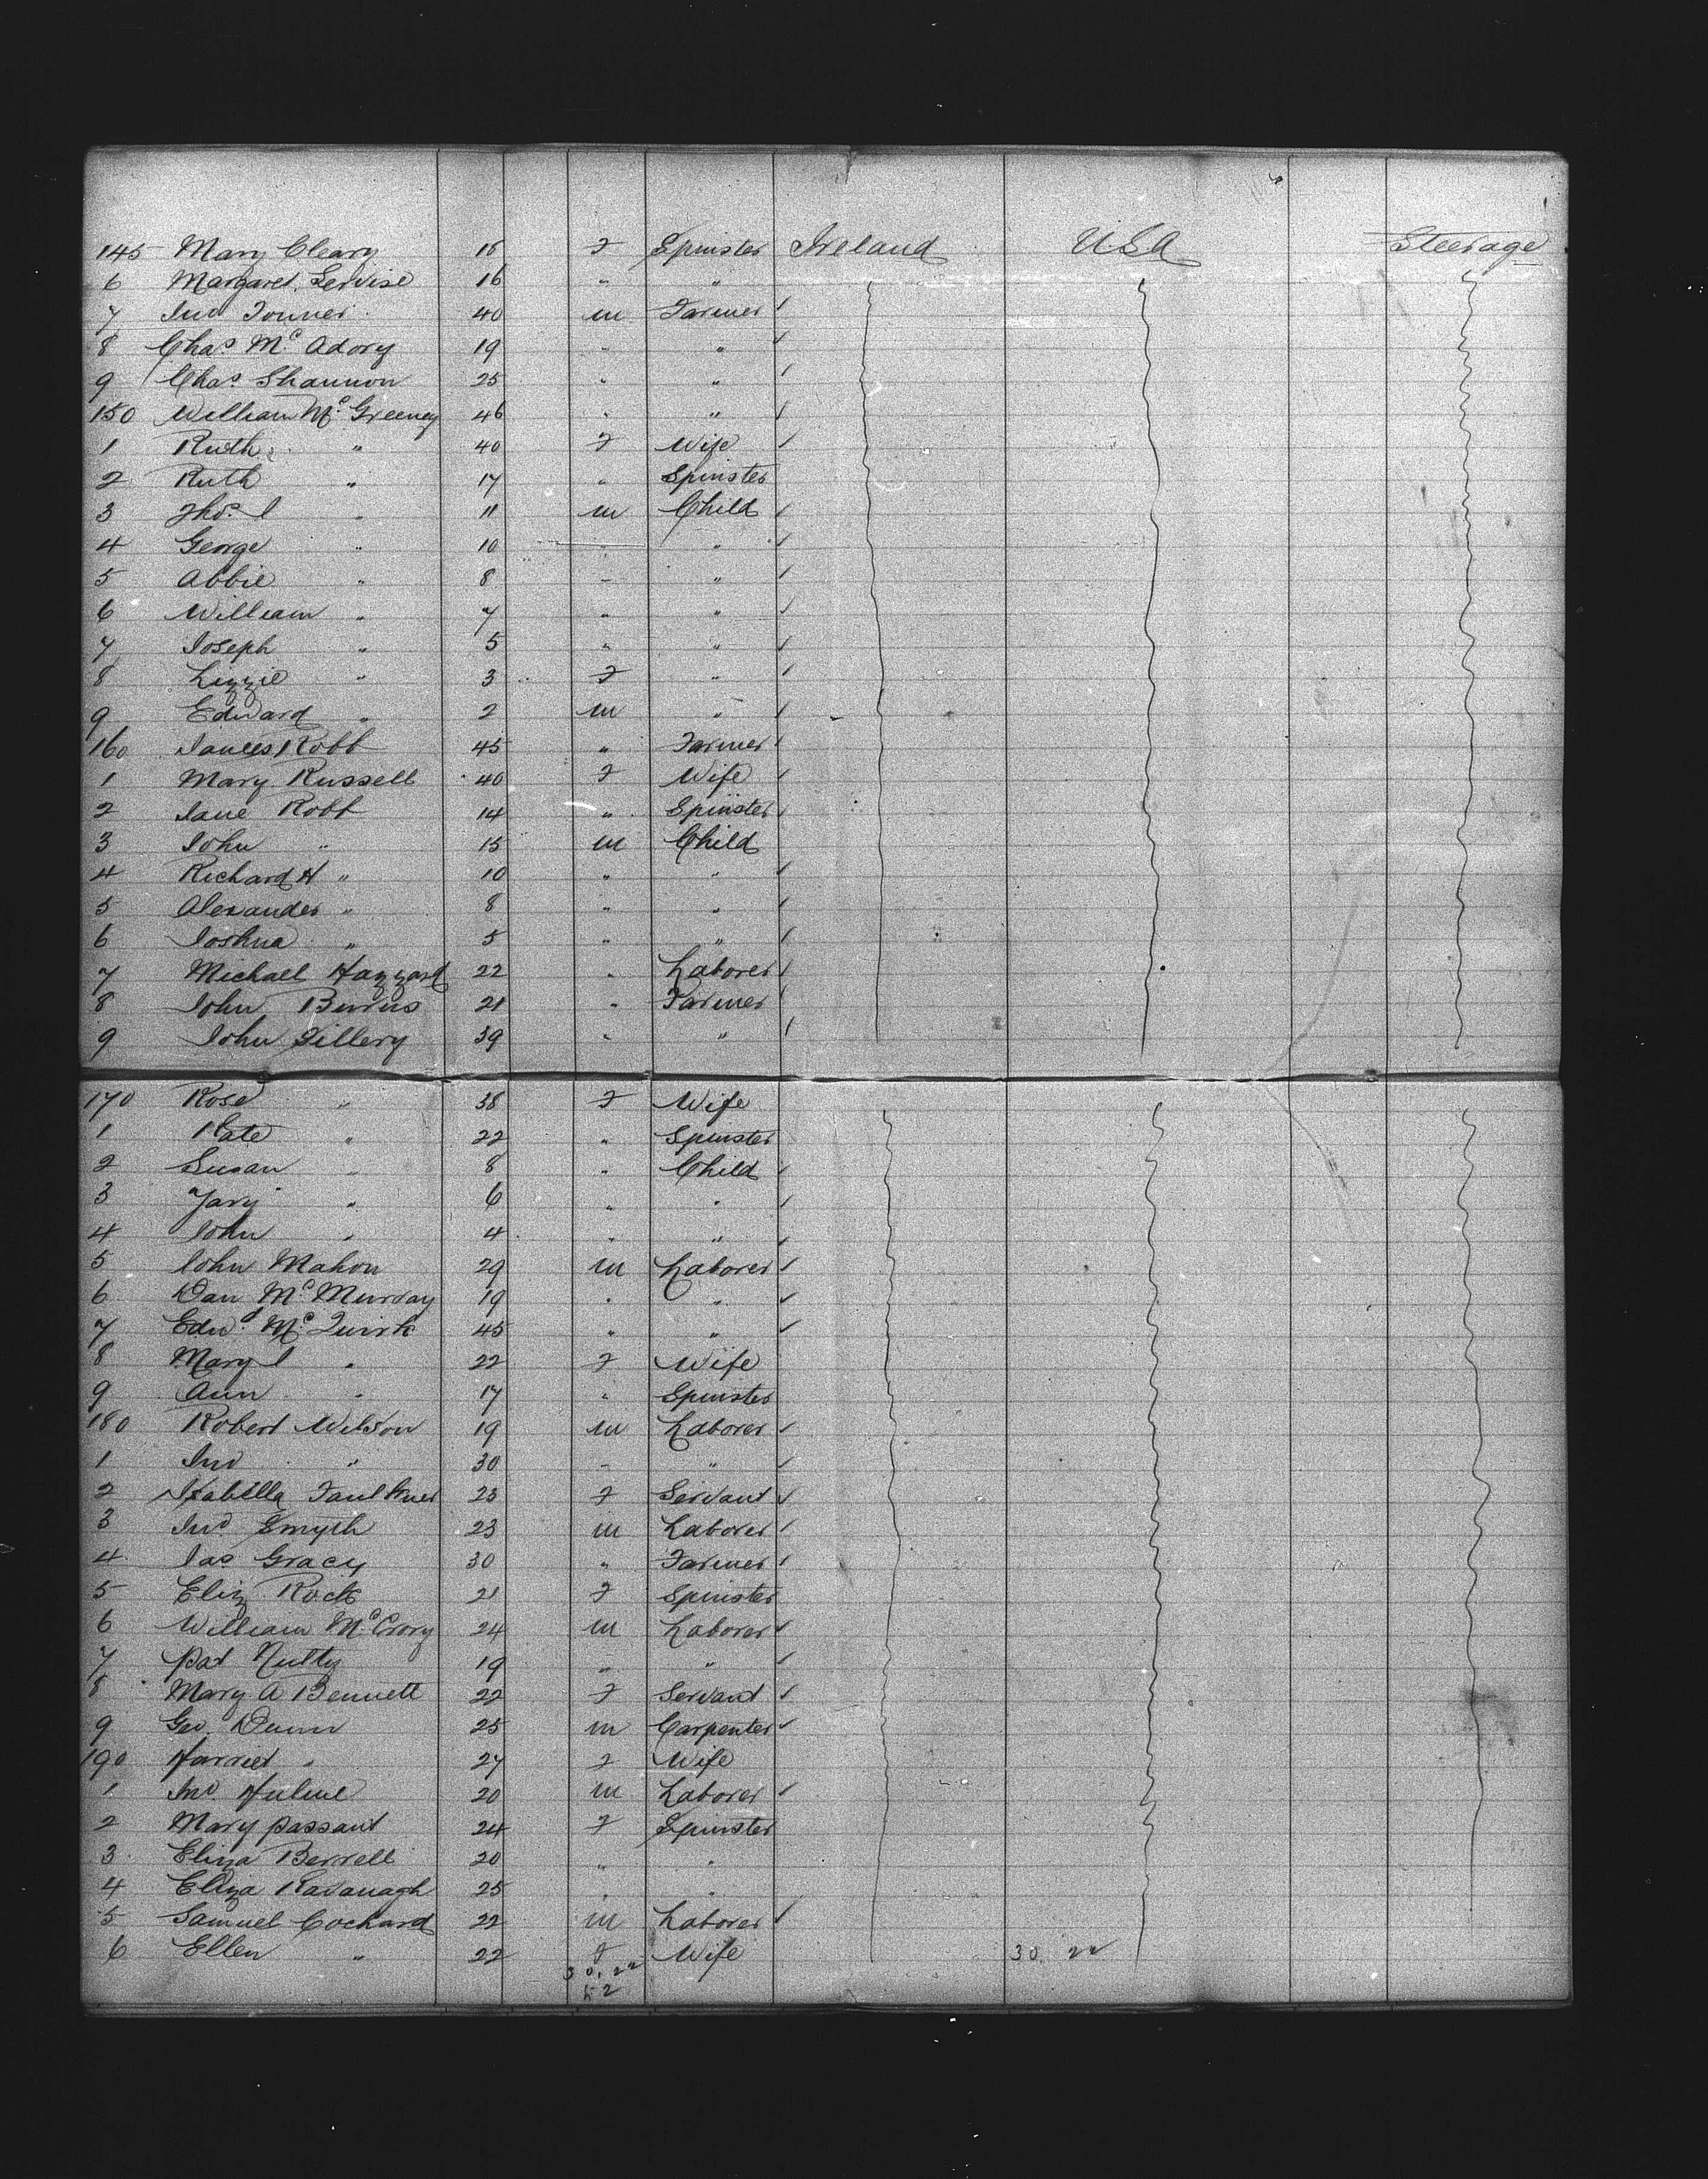 145 Mary Cleary 18 F Spinster Ireland USA Steerage
6 Margaret Servise 16 " "
7 Jno Tonner 40 m Farmer
8 Chas McAdory 19 " "
9 Chas Shannon 25 " "
150 William McGreeney 46 " "
1 Ruth " 40 F Wife
2 Ruth " 17 " Spinster
3 Thos I " 11 m Child
4 George " 10 " "
5 Abbie " 8 " "
6 William " 7 " "
7 Joseph " 5 " "
8 Lizzie " 3 F "
9 Edward " 2 m "
160 James Robb 45 " Farmer
1 Mary Russell 40 F Wife
2 Jane Robb 14 " Spinster
3 John " 15 m Child
4 Richard H " 10 " "
5 Alexander " 8 " "
6 Joshua " 5 " "
7 Michael Hazzard 22 " Laborer
8 John Burns 21 " Farmer
9 John Gillery 39 " "
170 Rose " 38 F Wife
1 Kate " 22 " Spinster
2 Susan " 8 " Child
3 " 6 " "
4 John " 4 " "
5 John Mahon 29 m Laborer
6 Dan McMurray 19 " "
7 Edwd McQuirk 45 " "
8 Mary I " 22 F Wife
9 Ann " 17 " Spinster
180 Robert Wilson 19 m Laborer
1 Jno " 30 " "
2 Isabella Faulkner 23 F Servant
3 Jno Smyth 23 m Laborer
4 Jas Gracy 30 " Farmer
5 Eliz Rock 21 F Spinster
6 William McCrory 24 m Laborer
7 Pat Nulty 19 " "
8 Mary A Bennett 22 F Servant
9 Geo. Dunn 25 m Carpenter
190 Harriet " 27 F Wife
1 Jno. Hulme 20 m Laborer
2 Mary Passant 24 F Spinster
3 Eliza Berrell 20 " "
4 Eliza Kavanagh 25 " "
5 Samuel Cochard 22 m Laborer
6 Ellen " 22 F Wife 30. 22
30. 22
52